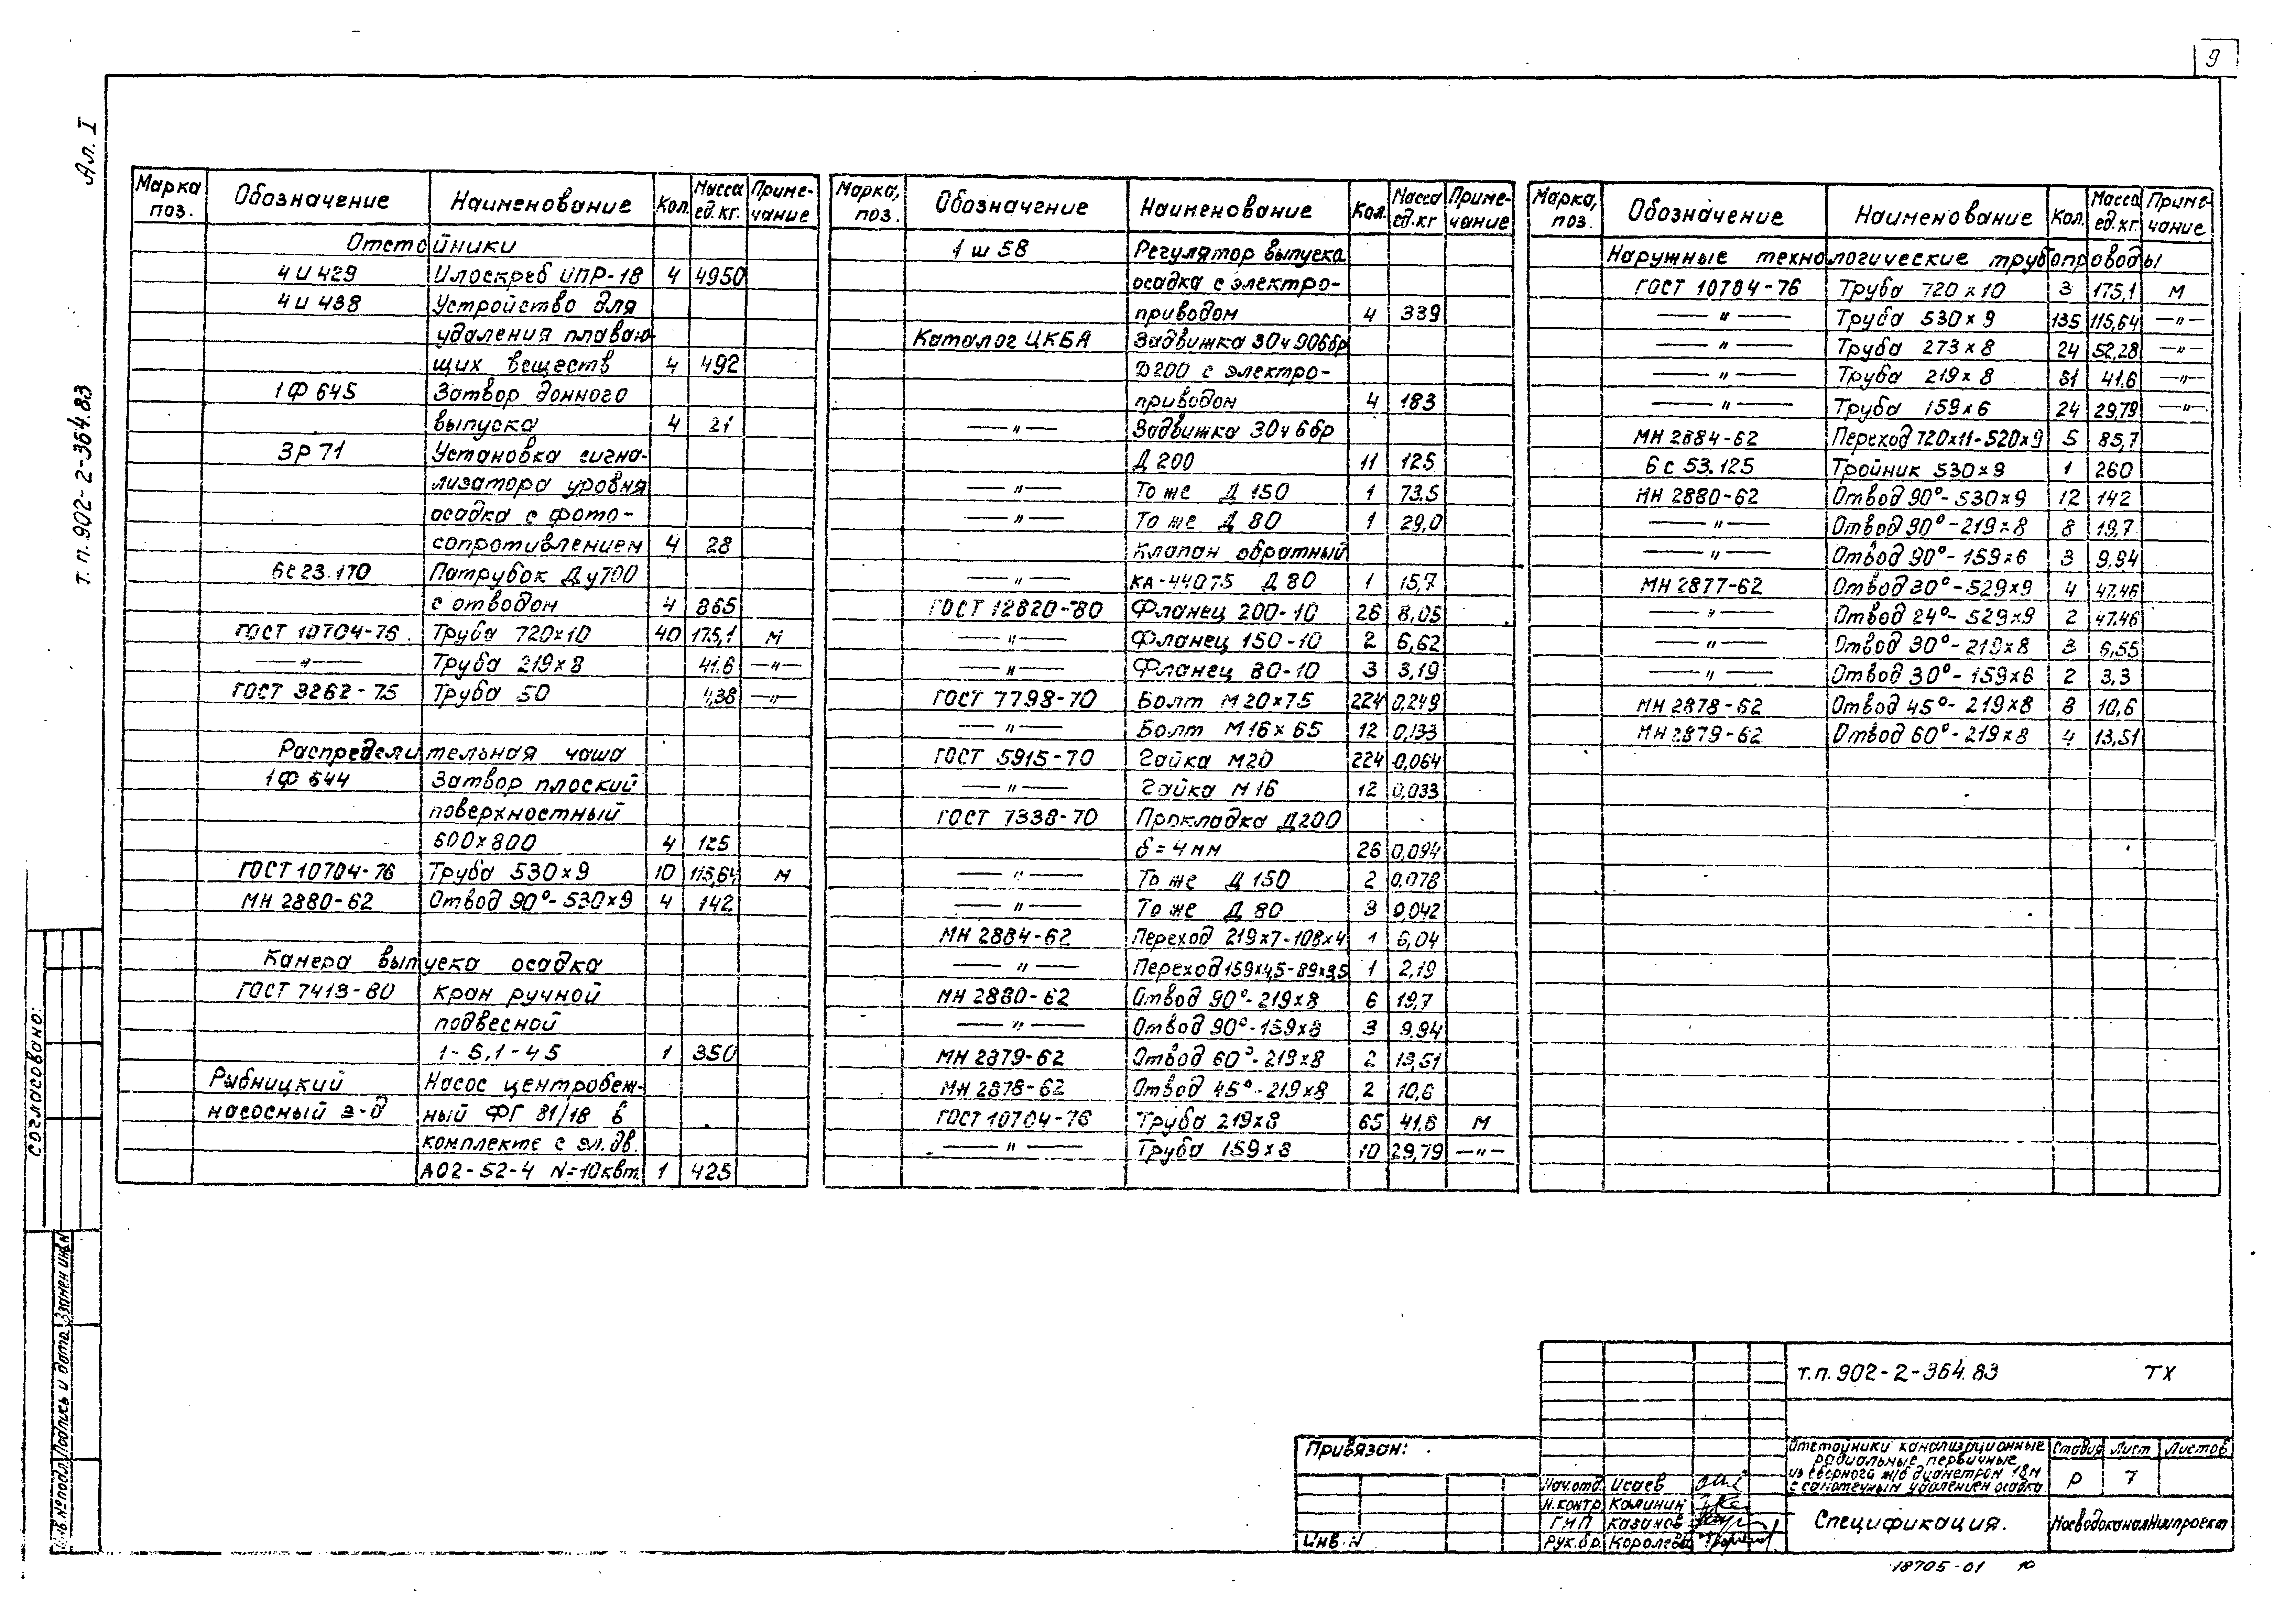 9
Ал. I
т. п. 902-2-364.83
Марка поз. Обозначение Наименование Кол. Масса ед. кг. Примечание
Отстойники
4И 429 Илоскреб ИПР-18 4 4950
4И 438 Устройство для
удаления плаваю-
щих веществ 4 492
1Ф 645 Затвор донного
выпуска 4 21
3Р 71 Установка сигна-
лизатора уровня
осадка с фото-
сопротивлением 4 28
6с 23.170 Патрубок Ду700
с отводом 4 865
ГОСТ 10704-76 Труба 720х10 40 175,1 М
—"— Труба 219х8 41.6 —"—
ГОСТ 3262-75 Труба 50 4,38 —"—
Распределительная чаша
1Ф 644 Затвор плоский
поверхностный
600х800 4 125
ГОСТ 10704-76 Труба 530х9 10 115,64 М
МН 2880-62 Отвод 90°-530х9 4 142
Камера выпуска осадка
ГОСТ 7413-80 Кран ручной
подвесной
1-5,1-45 1 350
Рыбницкий Насос центробеж-
насосный з-д ный ФГ 81/18 в
комплекте с эл. дв.
АО2-52-4 N=10квт. 1 425
Марка, поз. Обозначение Наименование Кол. Масса ед. кг Примечание
1 ш 58 Регулятор выпуска
осадка с электро-
приводом 4 339
Каталог ЦКБА Задвижка 30ч906бр
Д200 с электро-
приводом 4 183
—"— Задвижка 30ч6бр
Д 200 11 125
—"— То же Д 150 1 73.5
—"— То же Д 80 1 29,0
Клапан обратный
—"— КА-44075 Д 80 1 15,7
ГОСТ 12820-80 Фланец 200-10 26 8,05
—"— Фланец 150-10 2 6,62
—"— Фланец 80-10 3 3,19
ГОСТ 7798-70 Болт М20х75 224 0,249
—"— Болт М16х65 12 0,133
ГОСТ 5915-70 Гайка М20 224 0,064
—"— Гайка М16 12 0,033
ГОСТ 7338-70 Прокладка Д200
δ=4мм 26 0,094
—"— То же Д 150 2 0,078
—"— То же Д 80 3 0,042
МН 2884-62 Переход 219х7-108х4 1 6,04
—"— Переход 159х4,5-89х3,5 1 2,19
МН 2880-62 Отвод 90°-219х8 6 19,7
—"— Отвод 90°-159х8 3 9.94
МН 2879-62 Отвод 60°-219х8 2 13,51
МН 2878-62 Отвод 45°-219х8 2 10,6
ГОСТ 10704-76 Труба 219х8 65 41,6 М
—"— Труба 159х8 10 29,79 —"—
Марка, поз. Обозначение Наименование Кол. Масса ед. кг Примечание
Наружные технологические трубопроводы
ГОСТ 10704-76 Труба 720х10 3 175,1 М
—"— Труба 530х9 135 115,64 —"—
—"— Труба 273х8 24 52,28 —"—
—"— Труба 219х8 51 41.6 —"—
—"— Труба 159х6 24 29,79 —"—
МН 2884-62 Переход 720х11-520х9 5 85,7
6с 53.125 Тройник 530х9 1 260
МН 2880-62 Отвод 90°-530х9 12 142
—"— Отвод 90°-219х8 8 19,7
—"— Отвод 90°-159х6 3 9,94
МН 2877-62 Отвод 30°-529х9 4 47.46
—"— Отвод 24°-529х9 2 47.46
—"— Отвод 30°-219х8 3 6,55
—"— Отвод 30°-159х6 2 3.3
МН 2878-62 Отвод 45°-219х8 8 10,6
МН 2879-62 Отвод 60°-219х8 4 13,51
Согласовано:
Взамен инв. N
Подпись и дата
Инв. № подл.
Привязан:
Инв. N
Нач. отд. Исаев
Н. контр. Калинин
ГИП Казанов
Рук. бр. Королева
т.п. 902-2-364.83 ТХ
Отстойники канализационные
радиальные первичные
из сборного ж/б диаметром 18м
с самотечным удалением осадка
Стадия Лист Листов
Р 7
Спецификация.
МосводоканалНИИпроект
18705-01 10